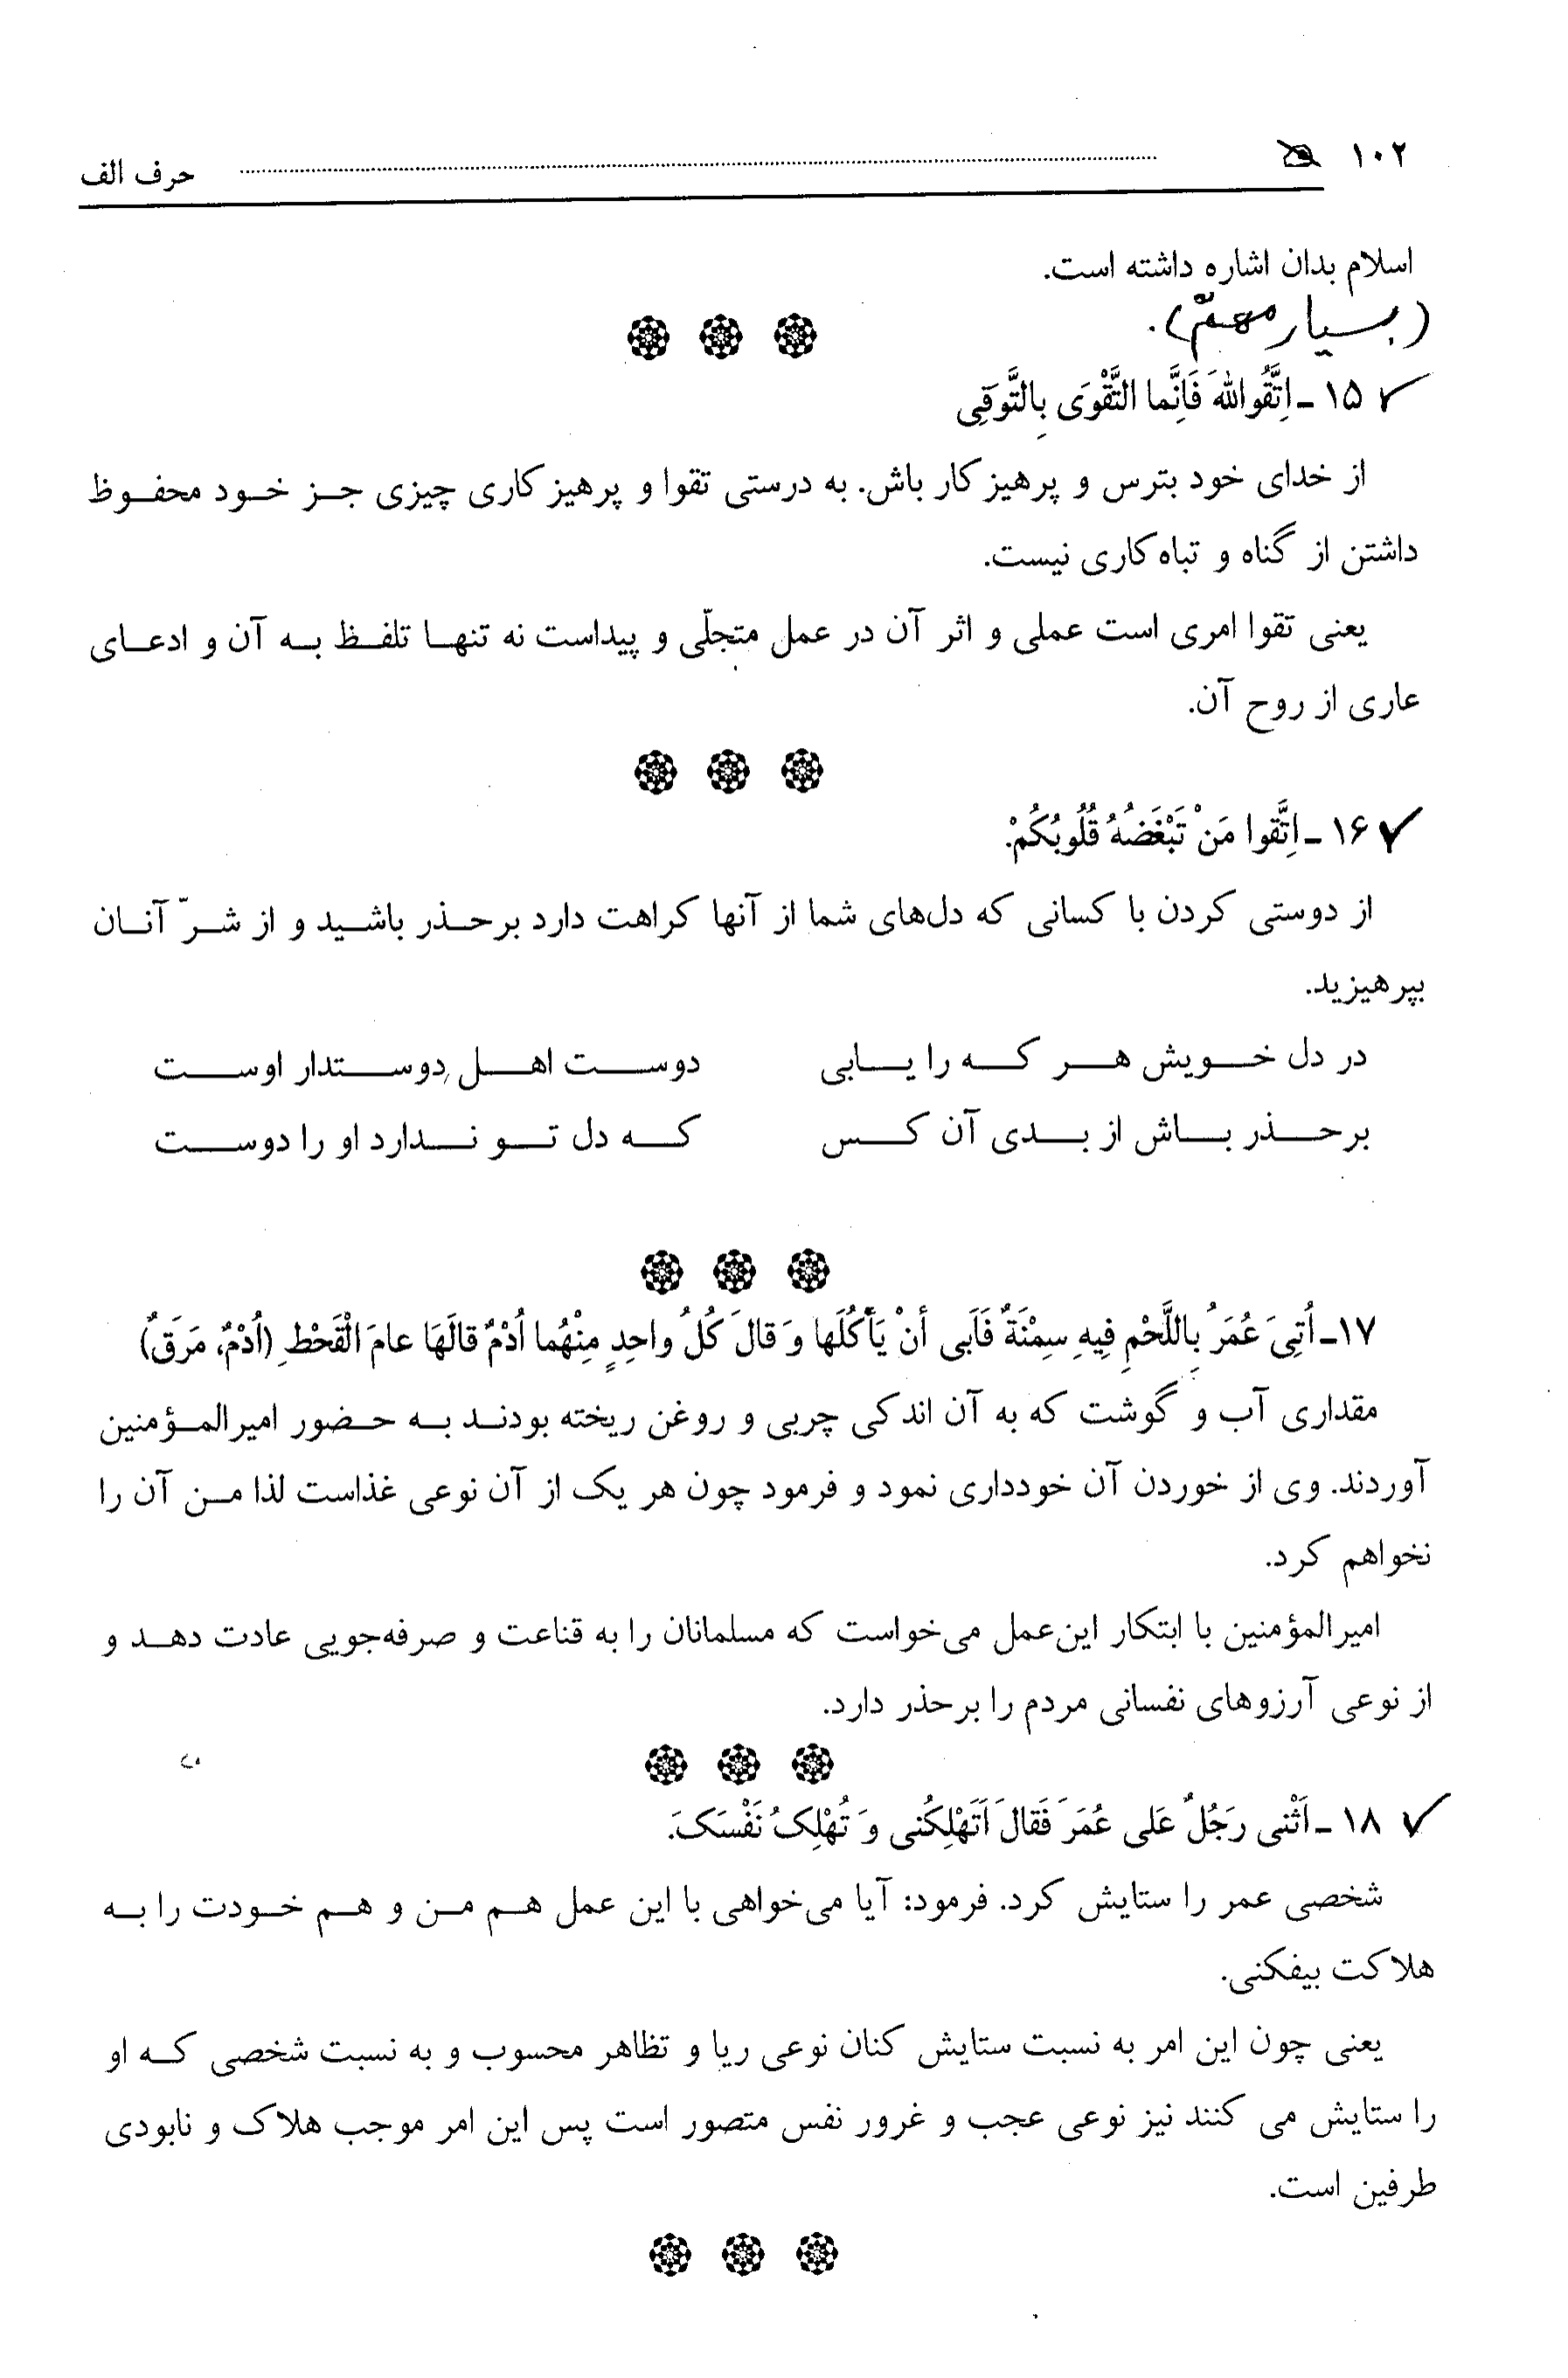 ۱۰۲ حرف الف
اسلام بدان اشاره داشته است.
(بسیار مهمّ).
۱۵ ـ اِتَّقُوا اللهَ فَاِنَّما التَّقْوَی بِالتَّوَقِی
از خدای خود بترس و پرهیزکار باش. به درستی تقوا و پرهیزکاری چیزی جز خود محفوظ
داشتن از گناه و تباه‌کاری نیست.
یعنی تقوا امری است عملی و اثر آن در عمل متجلّی و پیداست نه تنها تلفظ به آن و ادعای
عاری از روح آن.
۱۶ ـ اِتَّقوا مَنْ تَبْغَضُهُ قُلُوبُکُمْ.
از دوستی کردن با کسانی که دل‌های شما از آنها کراهت دارد برحذر باشید و از شرّ آنان
بپرهیزید.
در دل خویش هر که را یابی دوست اهل دوستدار اوست
برحذر باش از بدی آن کس که دل تو ندارد او را دوست
۱۷ـ اُتِیَ عُمَرُ بِاللَّحْمِ فِیهِ سِمْنَةٌ فَاَبی أنْ یَأکُلَها وَ قالَ کُلُ واحِدٍ مِنْهُما اُدْمٌ قالَهَا عامَ الْقَحْطِ (اُدْمٌ، مَرَقٌ)
مقداری آب و گوشت که به آن اندکی چربی و روغن ریخته بودند به حضور امیرالمؤمنین
آوردند. وی از خوردن آن خودداری نمود و فرمود چون هر یک از آن نوعی غذاست لذا من آن را
نخواهم کرد.
امیرالمؤمنین با ابتکار این‌عمل می‌خواست که مسلمانان را به قناعت و صرفه‌جویی عادت دهد و
از نوعی آرزوهای نفسانی مردم را برحذر دارد.
۱۸ ـ اَثْنی رَجُلٌ عَلی عُمَرَ فَقالَ اَتَهْلِکُنی وَ تُهْلِکُ نَفْسَکَ.
شخصی عمر را ستایش کرد. فرمود: آیا می‌خواهی با این عمل هم من و هم خودت را به
هلاکت بیفکنی.
یعنی چون این امر به نسبت ستایش کنان نوعی ریا و تظاهر محسوب و به نسبت شخصی که او
را ستایش می کنند نیز نوعی عجب و غرور نفس متصور است پس این امر موجب هلاک و نابودی
طرفین است.